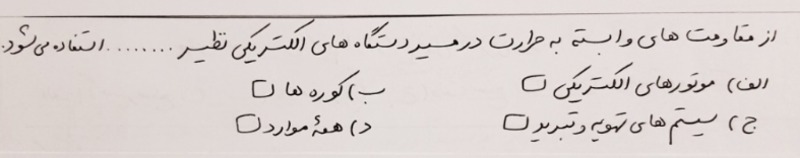 از مقاومت های وابسته به حرارت در مسیر دستگاه های الکتریکی نظیر ........ استفاده می شود.
الف) موتورهای الکتریکی □ ب) کوره ها □
ج) سیستم های تهویه و تبرید □ د) همهٔ موارد □